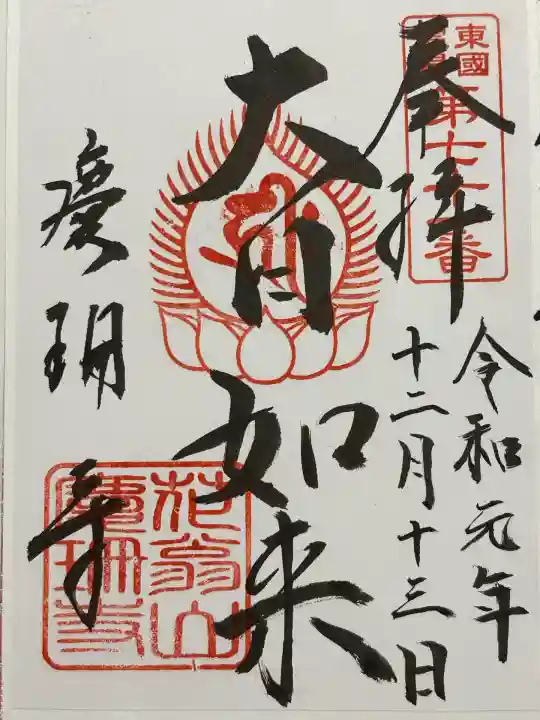 東國
第七
番
奉拝
令和元年
十二月十三日
大日如来
慶珊寺
花翁山
慶珊寺